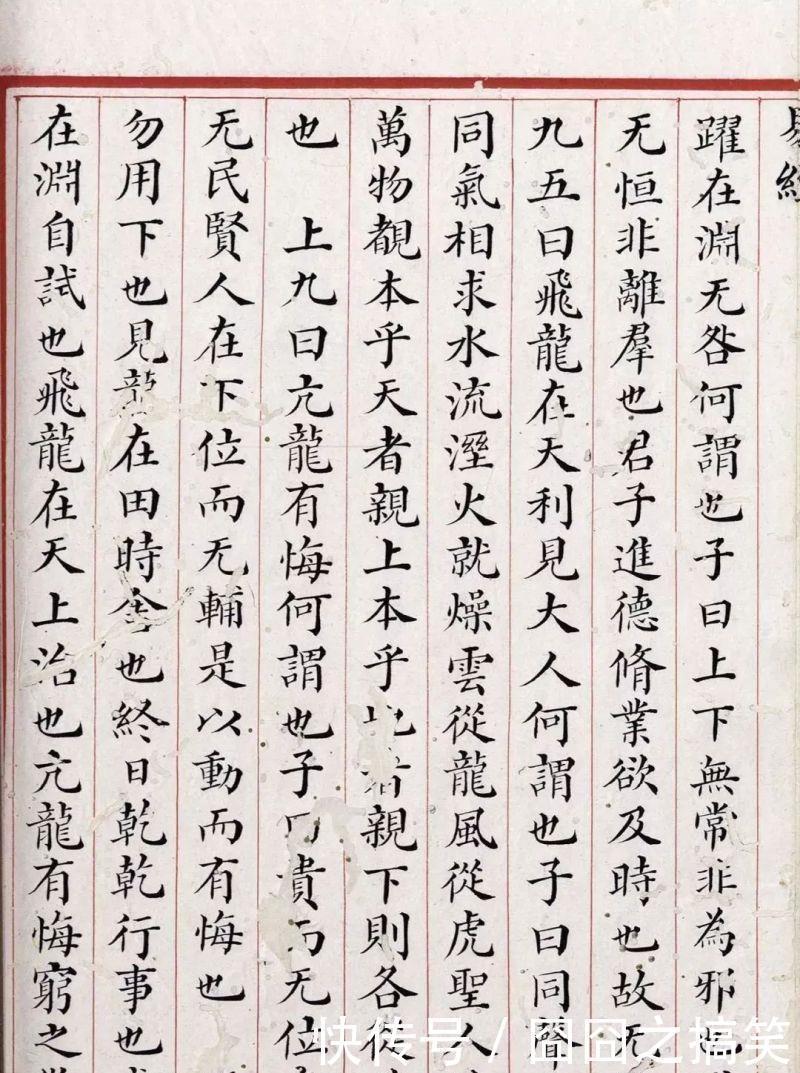 易經
躍在淵无咎何謂也子曰上下無常非為邪也
无恒非離羣也君子進德脩業欲及時也故无
九五曰飛龍在天利見大人何謂也子曰同聲
同氣相求水流溼火就燥雲從龍風從虎聖人
萬物覩本乎天者親上本乎地者親下則各從
也 上九曰亢龍有悔何謂也子曰貴而无位
无民賢人在下位而无輔是以動而有悔也
勿用下也見龍在田時舍也終日乾乾行事也
在淵自試也飛龍在天上治也亢龍有悔窮之
快传号/囧囧之搞笑